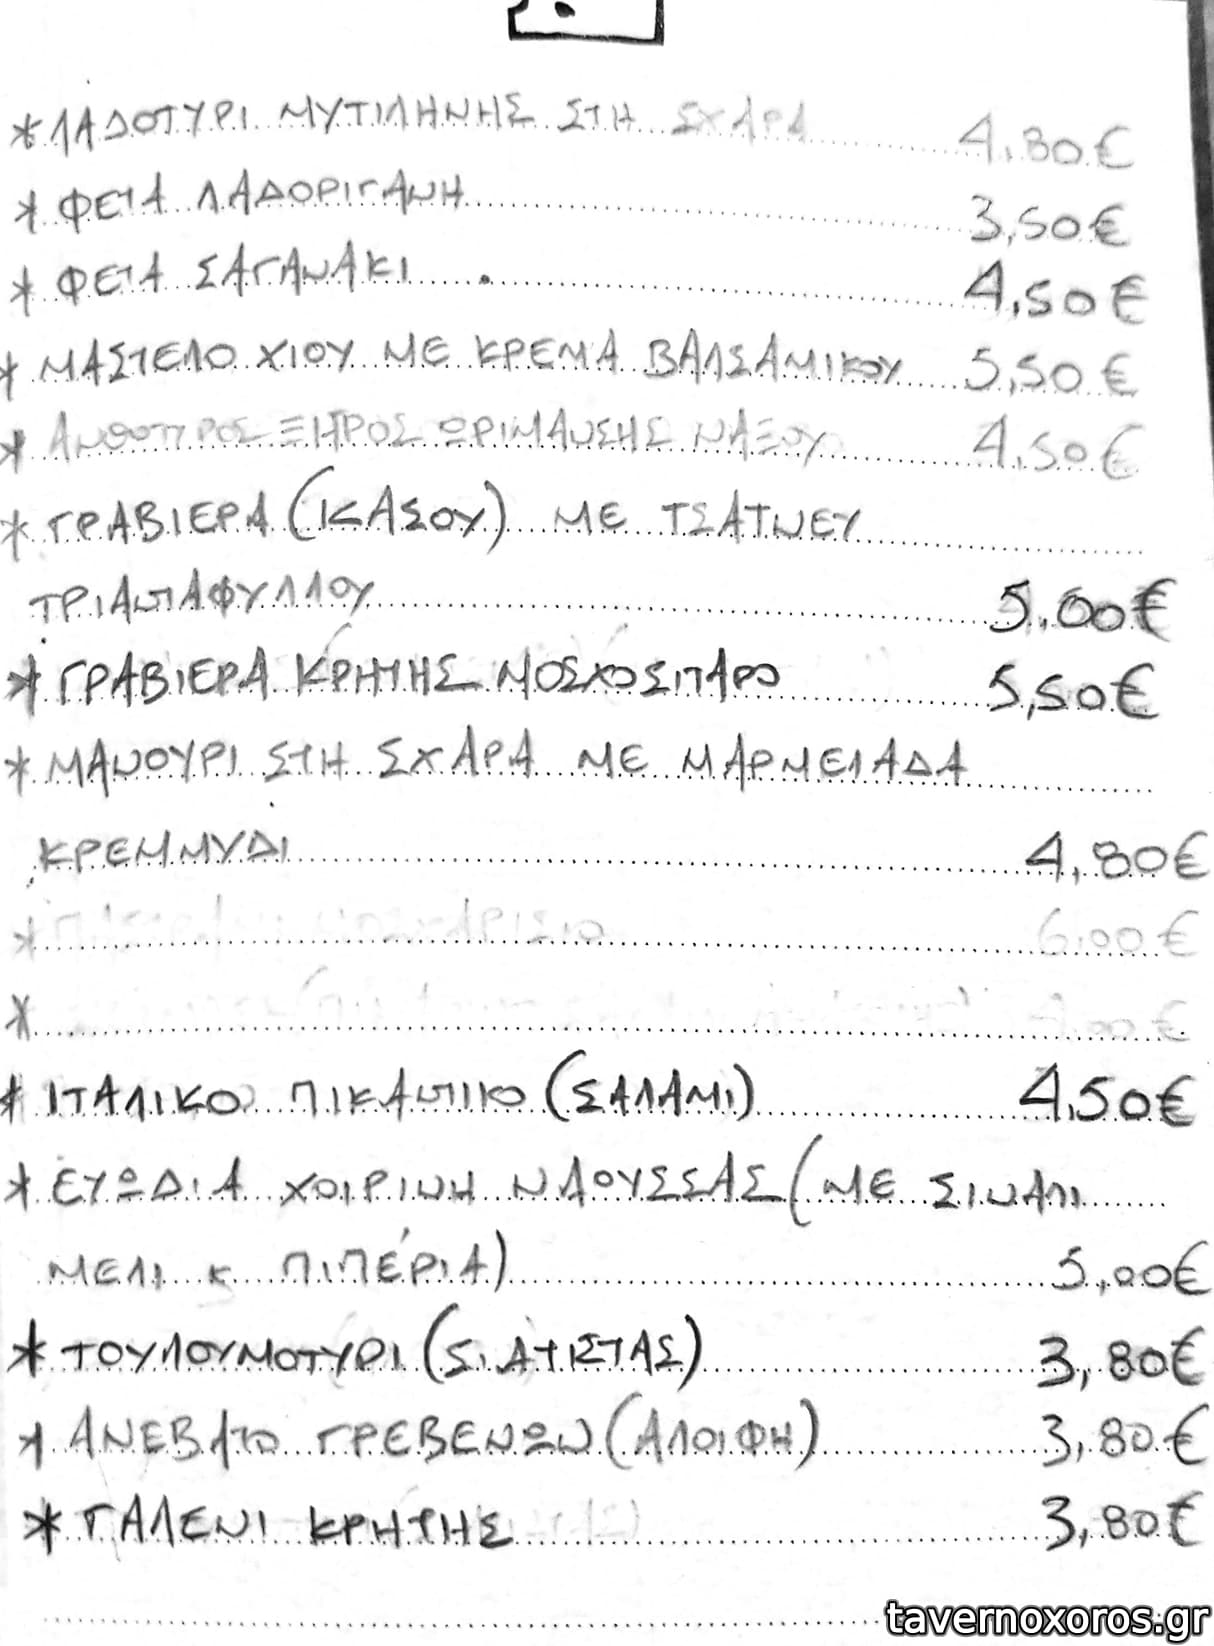 * ΛΑΔΟΤΥΡΙ ΜΥΤΙΛΗΝΗΣ ΣΤΗ ΣΧΑΡΑ 4,80€
* ΦΕΤΑ ΛΑΔΟΡΙΓΑΝΗ 3,50€
* ΦΕΤΑ ΣΑΓΑΝΑΚΙ 4,50€
* ΜΑΣΤΕΛΟ ΧΙΟΥ ΜΕ ΚΡΕΜΑ ΒΑΛΣΑΜΙΚΟΥ 5,50€
* ΑΝΘΟΤΥΡΟΣ ΞΗΡΟΣ ΩΡΙΜΑΝΣΗΣ ΝΑΞΟΥ 4,50€
* ΓΡΑΒΙΕΡΑ (ΚΑΣΟΥ) ΜΕ ΤΣΑΤΝΕΥ
ΤΡΙΑΝΤΑΦΥΛΛΟΥ 5,00€
* ΓΡΑΒΙΕΡΑ ΚΡΗΤΗΣ ΜΟΣΧΟΣΙΤΑΡΟ 5,50€
* ΜΑΝΟΥΡΙ ΣΤΗ ΣΧΑΡΑ ΜΕ ΜΑΡΜΕΛΑΔΑ
ΚΡΕΜΜΥΔΙ 4,80€
* 6,00€
*
* ΙΤΑΛΙΚΟ ΠΙΚΑΝΤΙΚΟ (ΣΑΛΑΜΙ) 4,50€
* ΕΥΩΔΙΑ ΧΟΙΡΙΝΗ ΝΑΟΥΣΣΑΣ (ΜΕ ΣΙΝΑΠΙ
ΜΕΛΙ Κ ΠΙΠΕΡΙΑ) 5,00€
* ΤΟΥΛΟΥΜΟΤΥΡΙ (ΣΙΑΤΙΣΤΑΣ) 3,80€
* ΑΝΕΒΑΤΟ ΓΡΕΒΕΝΩΝ (ΑΛΟΙΦΗ) 3,80€
* ΓΑΛΕΝΙ ΚΡΗΤΗΣ 3,80€
tavernoxoros.gr